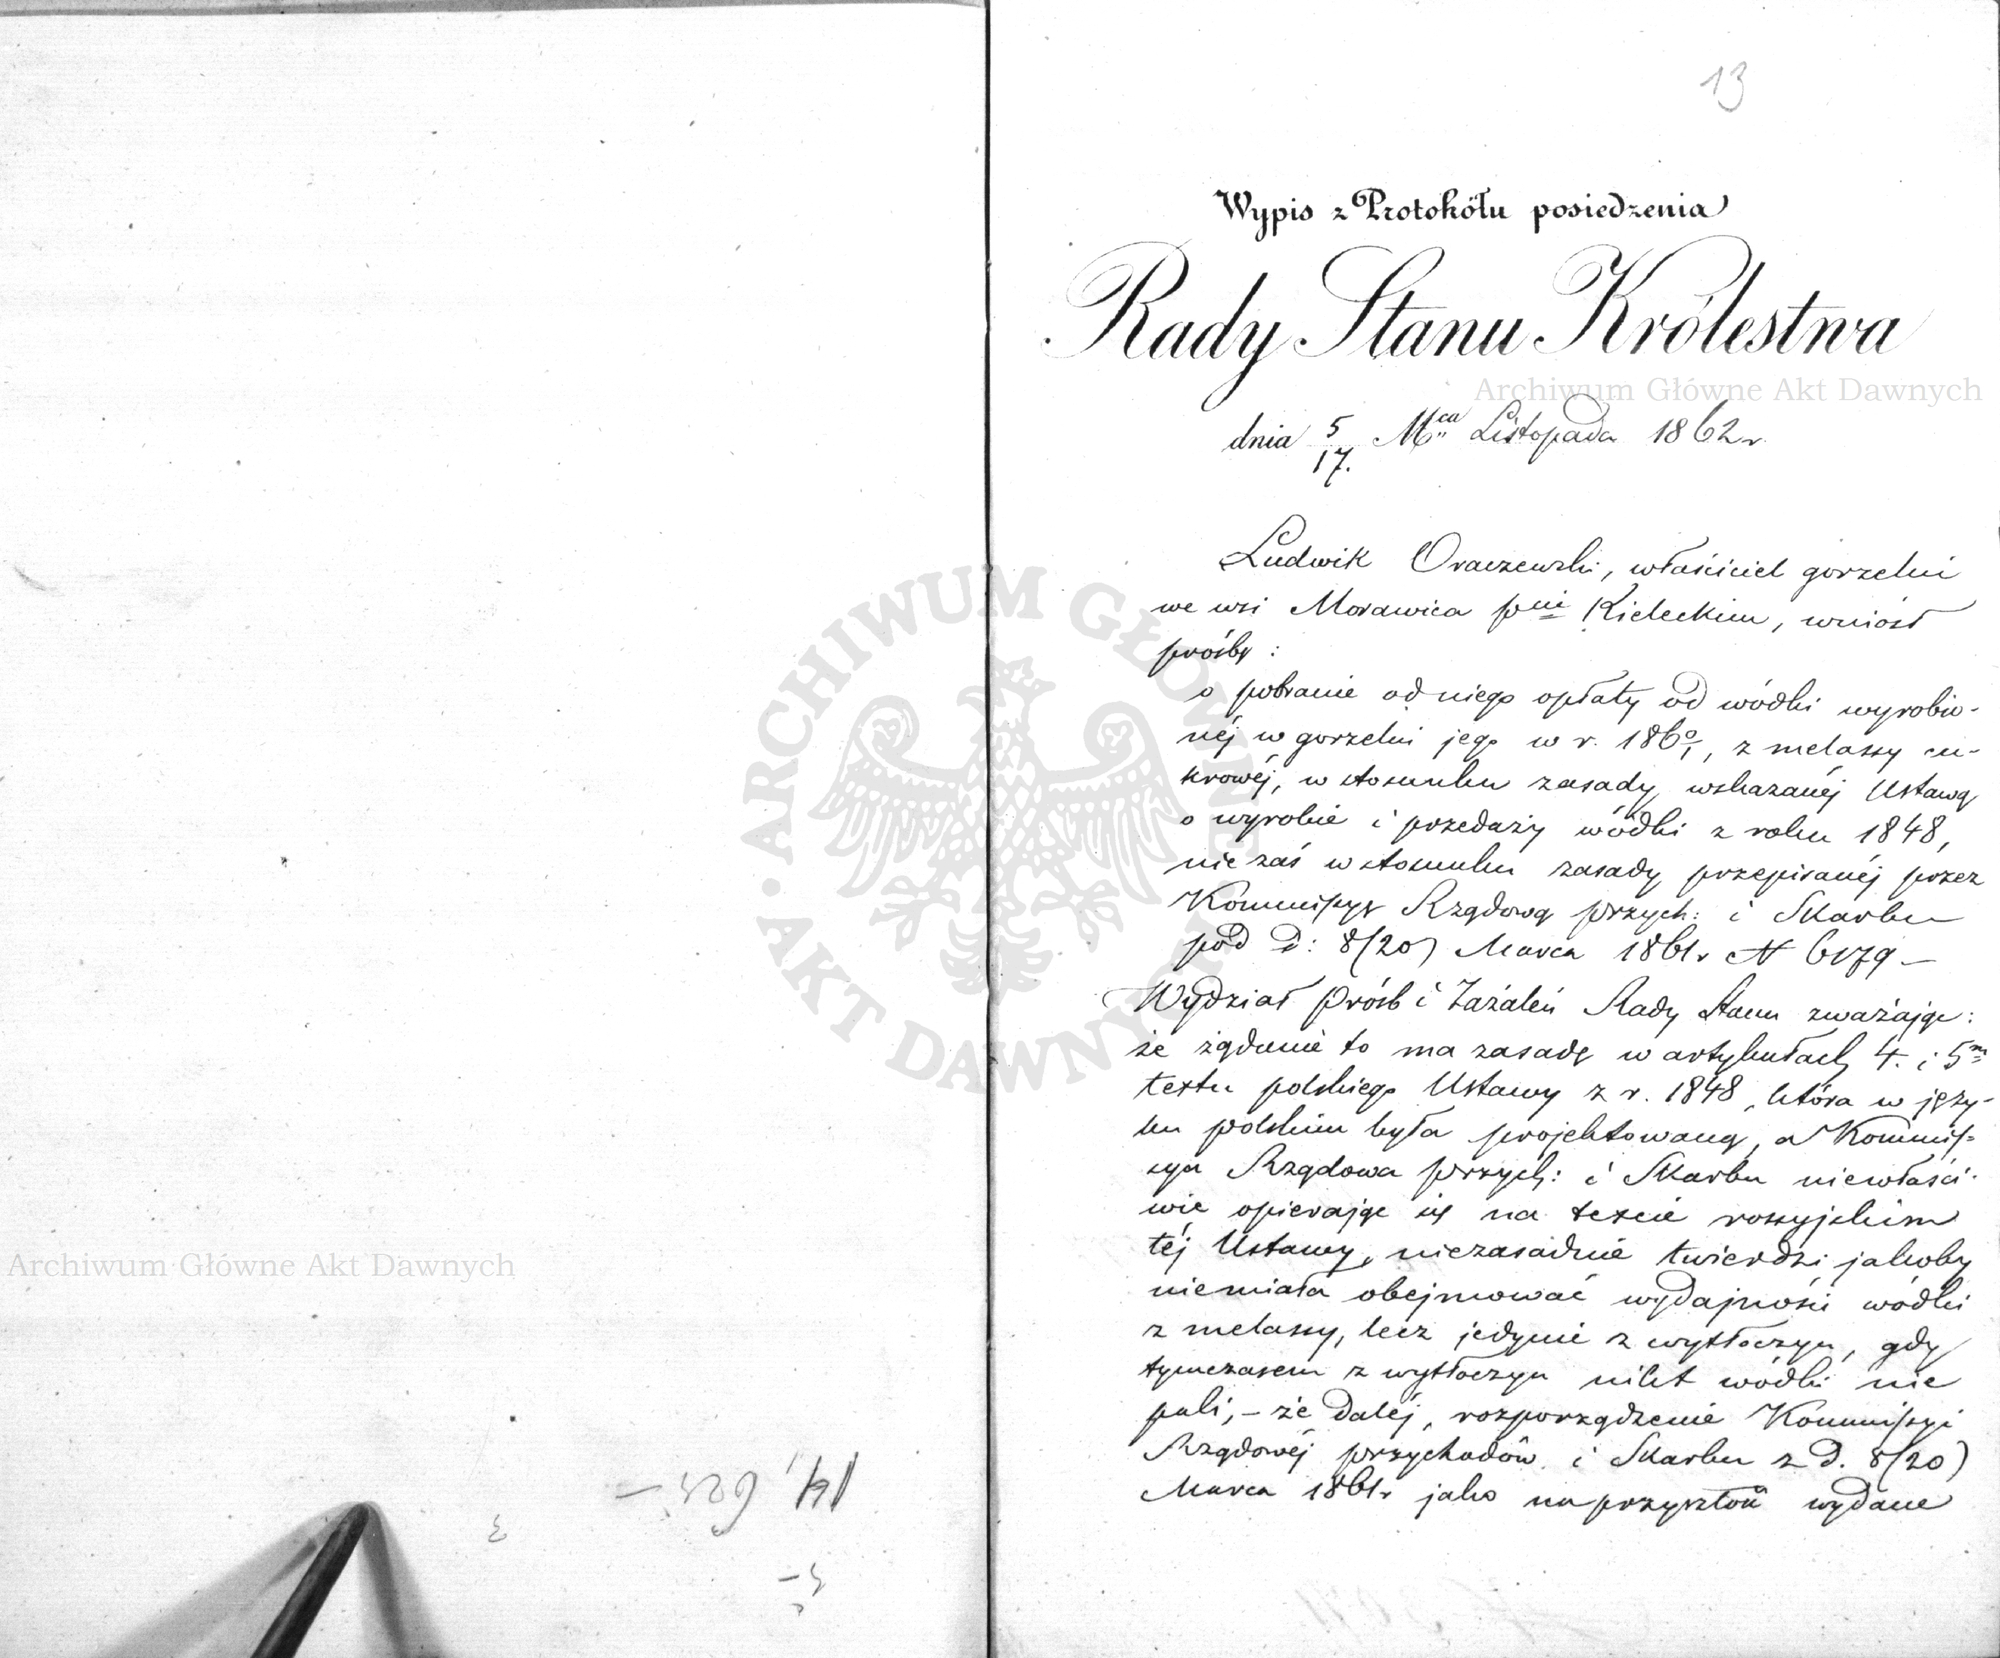 13
Wypis z Protokółu posiedzenia
Rady Stanu Królestwa
Archiwum Główne Akt Dawnych
dnia 5/17. Mca Listopada 1862 r.
Ludwik Oraczewski, właściciel gorzelni
we wsi Morawica pcie Kieleckim, wniósł
prośbę :
o pobranie od niego opłaty od wódki wyrobio-
néj w gorzelni jego w r. 1860/1, z melassy cu-
krowéj, w stosunku zasady wskazanéj Ustawą
o wyrobie i przedaży wódki z roku 1848,
nie zaś w stosunku zasady przepisanéj przez
Kommissyę Rządową przych: i Skarbu
pod d: 8/20) Marca 1861 r N 6179 —
Wydział Próśb i Zażaleń Rady Stanu zważając:
że żądanie to ma zasadę w artykułach 4. i 5m
textu polskiego Ustawy z r. 1848, która w języ-
ku polskim była projektowaną, a Kommis-
sya Rządowa przych: i Skarbu niewłaści-
wie opierając się na texcie rossyjskim
téj Ustawy, niezasadnie twierdzi jakoby
niemiała obejmować wydajności wódki
z melassy, lecz jedynie z wytłoczyn, gdy
tymczasem z wytłoczyn nikt wódki nie
pali, — że daléj, rozporządzenie Kommissyi
Rządowéj przychodów i Skarbu z d. 8/20)
Marca 1861 r jako na przyszłość wydane
Archiwum Główne Akt Dawnych
ARCHIWUM GŁÓWNE AKT DAWNYCH